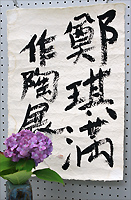 鄭琪満
作陶展